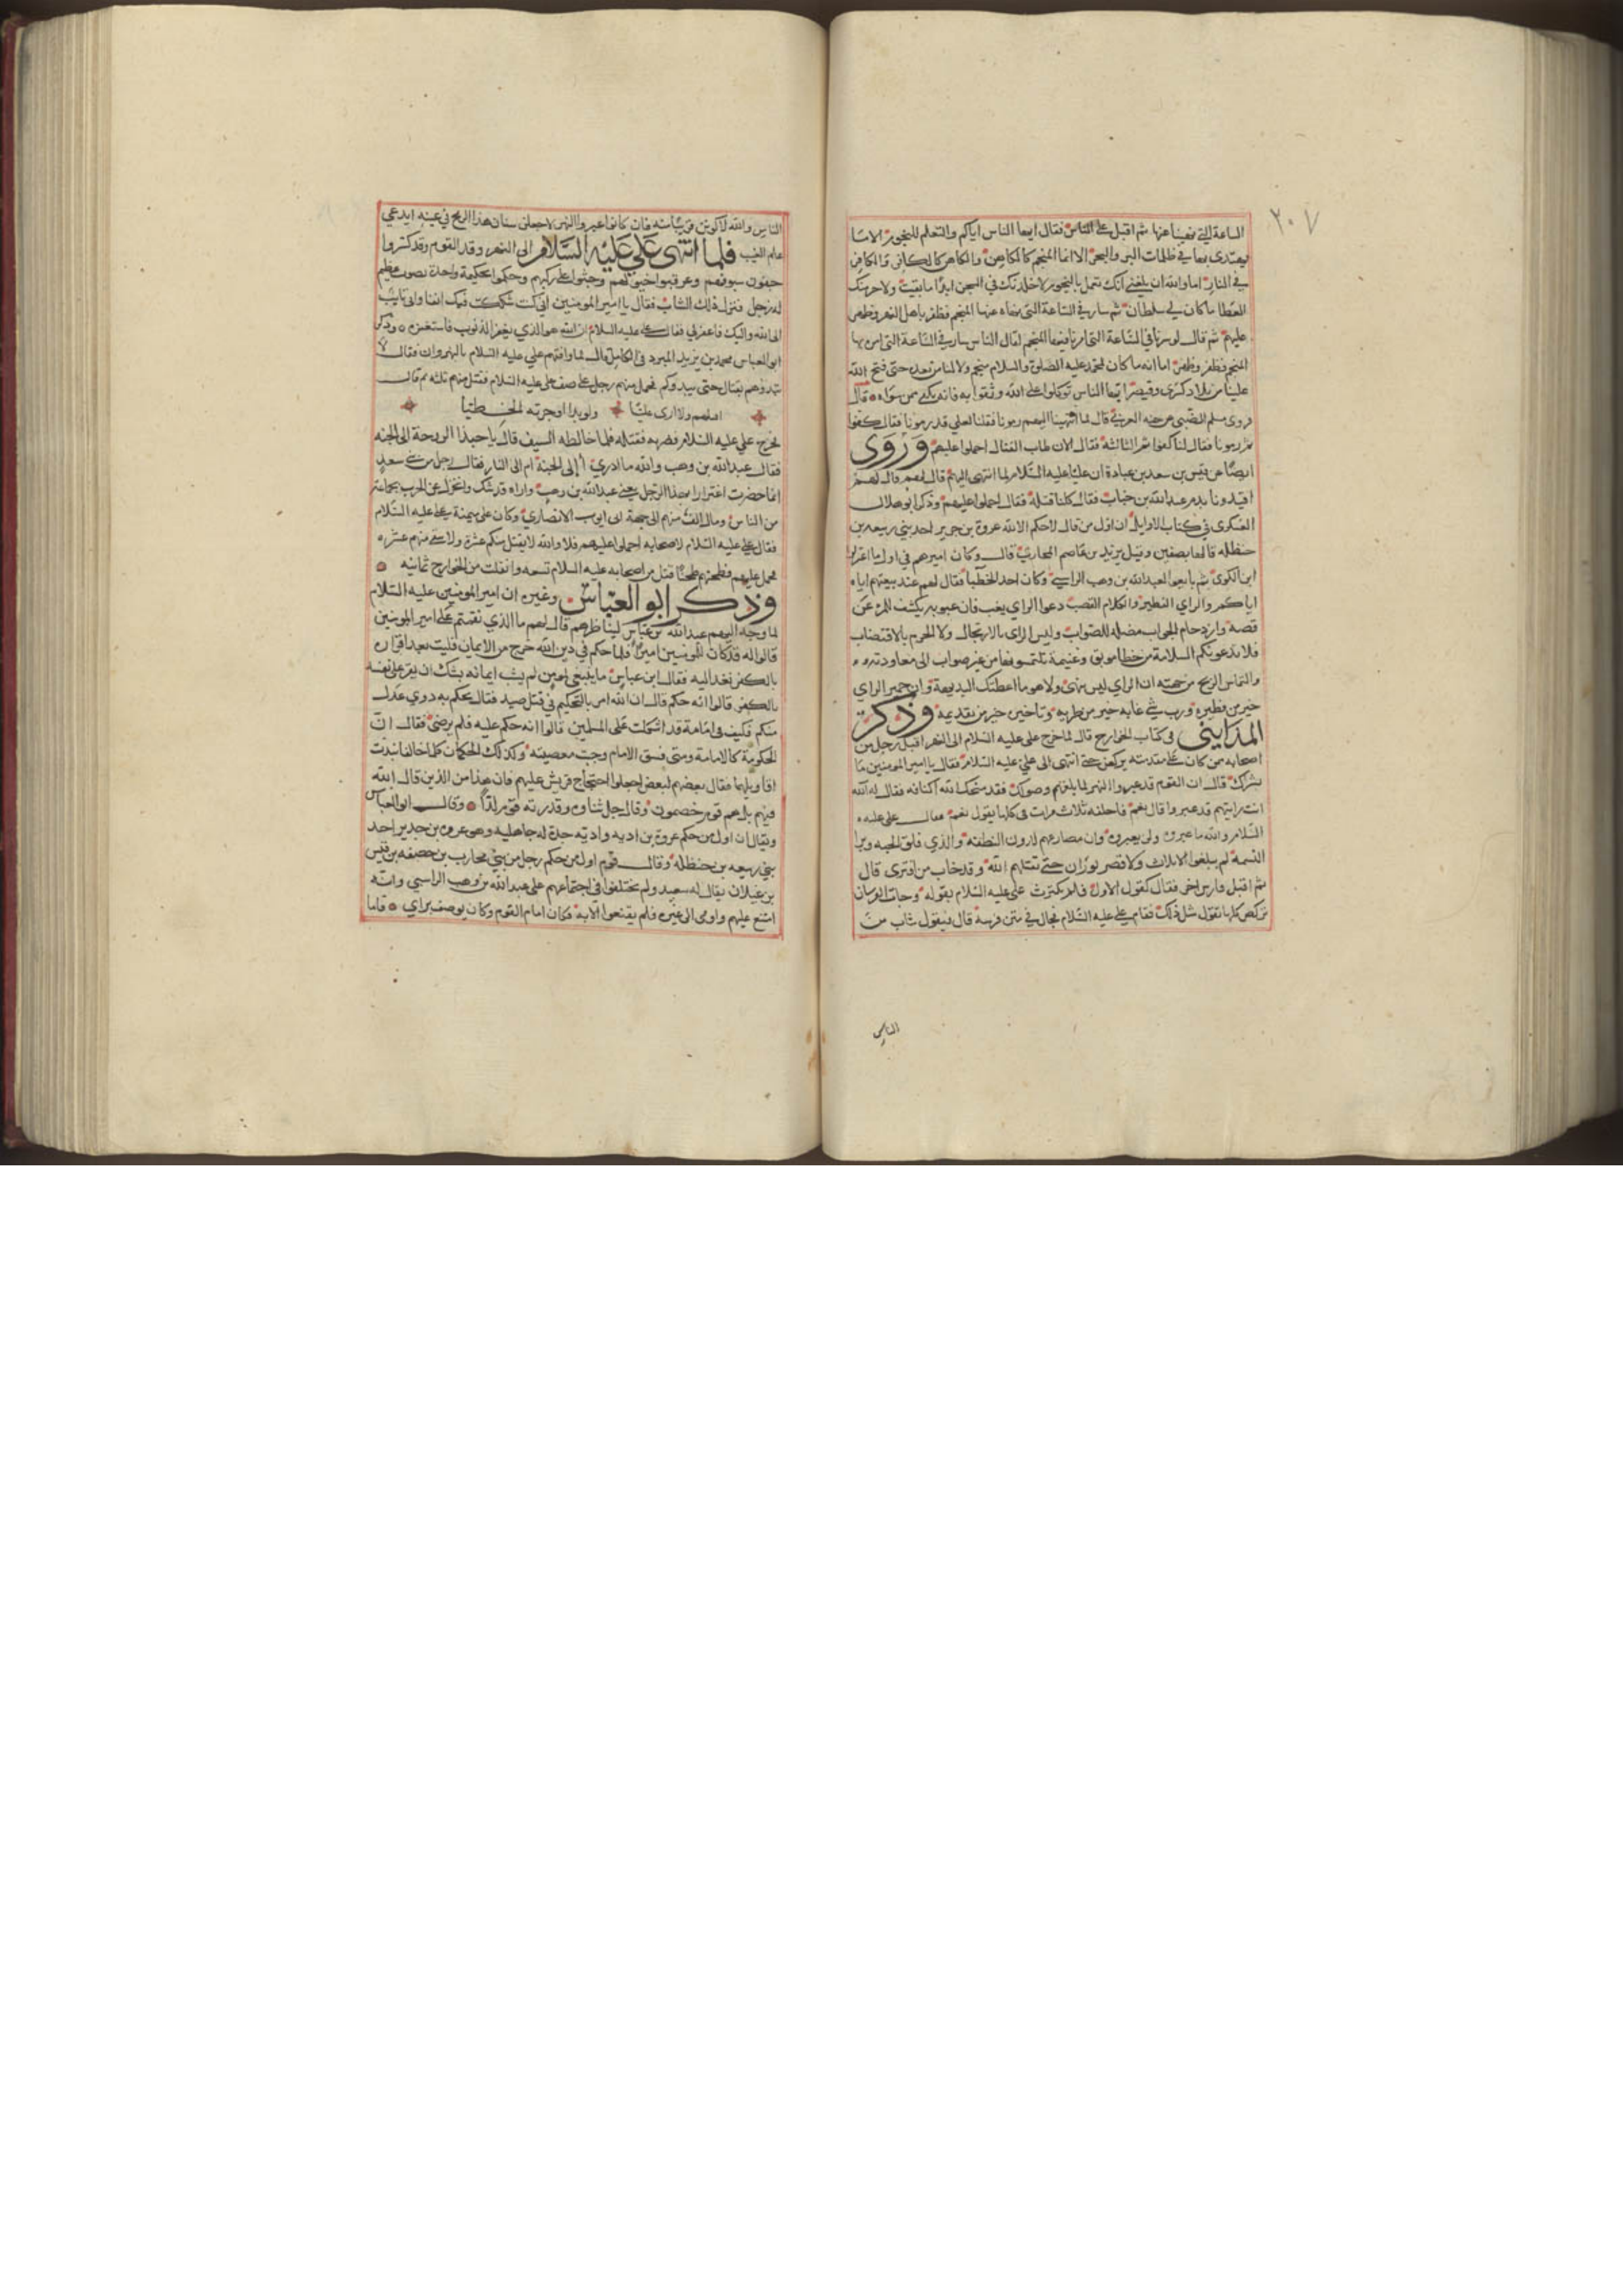 ٢٠٧
الساعة التي نهينا عنها ثم اقبل على الناس فقال ايها الناس اياكم والتعلم للنجوم الا ما
يهتدى بها في ظلمات البر والبحر الا انما المنجم كالكاهن والكاهن كالكافر والكافر
في النار اما والله ان بلغني انك تعمل بالنجوم لاخلدنك في السجن ابدا ما بقيت ولاحرمنك
العطا ما كان لي سلطان ثم سار في الساعة التي نهاه عنها المنجم فظفر باهل النهر وظهر
عليهم ثم قال لو سرنا في الساعة التي امرنا فيها المنجم لقال الناس سار في الساعة التي امر بها
المنجم فظفر وظهر اما انه ما كان لمحمد عليه الصلوة والسلام منجم ولا لنا من بعده حتى فتح الله
علينا من بلاد كسرى وقيصر ايها الناس توكلوا على الله وثقوا به فانه يكفى ممن سواه قال
فروى مسلم الضبي عن حبه العرني قال لما انتهينا اليهم رمونا فقلنا لعلي قد رمونا فقال كفوا
ثم رمونا فقال لنا كفوا ثم الثالثة فقال الان طاب القتال احملوا عليهم وروى
ايضا عن قيس بن سعد بن عبادة ان عليا عليه السلام لما انتهى اليهم قال لهم
اقيدونا بدم عبد الله بن خباب فقالوا كلنا قتله فقال احملوا عليهم وذكر ابو هلال
العسكرى في كتاب الاوايل ان اول من قال لا حكم الا لله عروة بن حدير احد بني ربيعه بن
حنظله قالها بصفين وقيل يزيد بن عاصم المحاربي قال وكان اميرهم في اول ما اعتزلوا
ابن الكوى ثم بايعوا لعبد الله بن وهب الراسبي وكان احد الخطبا فقال لهم عند بيعتهم اياه
اياكم والراي الفطير والكلام القضب دعوا الراي يغب فان غبوبه يكشف للمرء عن
قصه وازدحام الجواب مضله للصواب وليس الراى بالارتجال ولا الحزم بالاقتضاب
فلا تدعونكم السلامة من خطا موبق وغنيمة نلتموها من غير صواب الى معاودته
والتماس الربح من جهته ان الراي ليس بنهبى ولا هو ما اعطتك البديهة وان خمير الراي
خير من فطيره ورب شي غابه خير من طريه وتاخيره خير من تقديمه وذكر
المدايني في كتاب الخوارج قال لما خرج علي عليه السلام الى النهر اقبل رجل من
اصحابه ممن كان على مقدمته يركض حتى انتهى الى علي عليه السلام فقال يا امير المومنين ما
بشراك قال ان القوم قد عبروا النهر لما بلغهم وصولك فقد منحك الله اكتافهم فقال له الله
انت رايتهم قد عبروا قال نعم فاحلفه ثلاث مرات في كلها يقول نعم فقال علي عليه
السلام والله ما عبروه ولن يعبروه وان مصارعهم لدون النطفه والذي فلق الحبه وبرا
النسمة لم يبلغوا الاثلاث ولا قصر بوران حتى يقتلهم الله وقد خاب من افترى قال
ثم اقبل فارس اخر فقال كقول الاول فلم يكترث علي عليه السلام بقوله وجات الفرسان
تركض كلها تقول مثل ذلك فقام علي عليه السلام فجال في متن فرسه قال فيقول شاب من
الناس
الناس والله لاكونن قريبا منه فان كانوا عبروا النهر لاجعلن سنان هذا الرمح في عينه ايدعي
علم الغيب فلما انتهى علي عليه السلام الى النهر وقد القوم وقد كسروا
جفون سيوفهم وعرقبوا خيلهم وجثوا على ركبهم وحكموا تحكيمة واحدة بصوت عظيم
له زجل فنزل ذلك الشاب فقال يا امير المومنين اني كنت شككت فيك انفا واني تايب
الى الله واليك فاغفر لي فقال علي عليه السلام ان الله هو الذي يغفر الذنوب فاستغفره وذكر
ابو العباس محمد بن يزيد المبرد في الكامل قال لما واقفهم علي عليه السلام بالنهروان فقال لا
تبدوهم بقتال حتى يبدوكم فحمل منهم رجل على صف علي عليه السلام فقتل منهم ثلثه ثم قال
اقتلهم ولا ارى عليا ولو بدا اوجرته الخطيا
فخرج علي عليه السلام فضربه فقتله فلما خالطه السيف قال يا حبذا الروحة الى الجنه
فقال عبد الله بن وهب والله ما ادري أإلى الجنة ام الى النار فقال رجل من بني سعد
انما حضرت اغترارا بهذا الرجل يعني عبد الله بن وهب واراه قد شك وانخزل عن الحرب بجماعة
من الناس ومال الف منهم الى جهة ابى ايوب الانصاري وكان على ميمنة علي عليه السلام
فقال علي عليه السلام لاصحابه احملوا عليهم فلا والله لا يقتل منكم عشرة ولا يبقى منهم عشره
فحمل عليهم فطحنهم طحنا قتل من اصحابه عليه السلام تسعه وانفلت من الخوارج ثمانيه
وذكر ابو العباس وغيره ان امير المومنين عليه السلام
لما وجه اليهم عبد الله بن عباس ليناظرهم قال لهم ما الذي نقمتم على امير المومنين
قالوا له قد كان للمومنين امير فلما حكم في دين الله خرج من الايمان فليتب بعد اقراره
بالكفر نعد اليه فقال ابن عباس ما ينبغي لمومن لم يشب ايمانه بشك ان يقر على نفسه
بالكفر قالوا انه حكم قال ان الله امر بالتحكيم في قتل صيد فقال يحكم به ذوي عدل
منكم فكيف في امامة قد اشكلت على المسلمين قالوا انه حكم عليه فلم يرضى فقال ان
الحكومة كالامامة ومتى فسق الامام وجب معصيته وكذلك الحكمان لما خالفا نبذت
اقاويلهما فقال بعضهم لبعض اجعلوا احتجاج قريش عليهم فان هذا من الذين قال الله
فيهم بل هم قوم خصمون وقال جل ثناوه وقدرته قوم لدا وقال ابو العباس
ويقال ان اول من حكم عروة بن اديه واديه جدة له جاهليه وهو عروه بن حدير احد
بني ربيعه بن حنظله وقال قوم اول من حكم رجل من بني محارب بن خصفه بن قيس
بن عيلان يقال له سعيد ولم يختلفوا في اجتماعهم على عبد الله بن وهب الراسبي وانه
امتنع عليهم واومى الى غيره فلم يقنعوا الا به فكان امام القوم وكان يوصف براي فاما